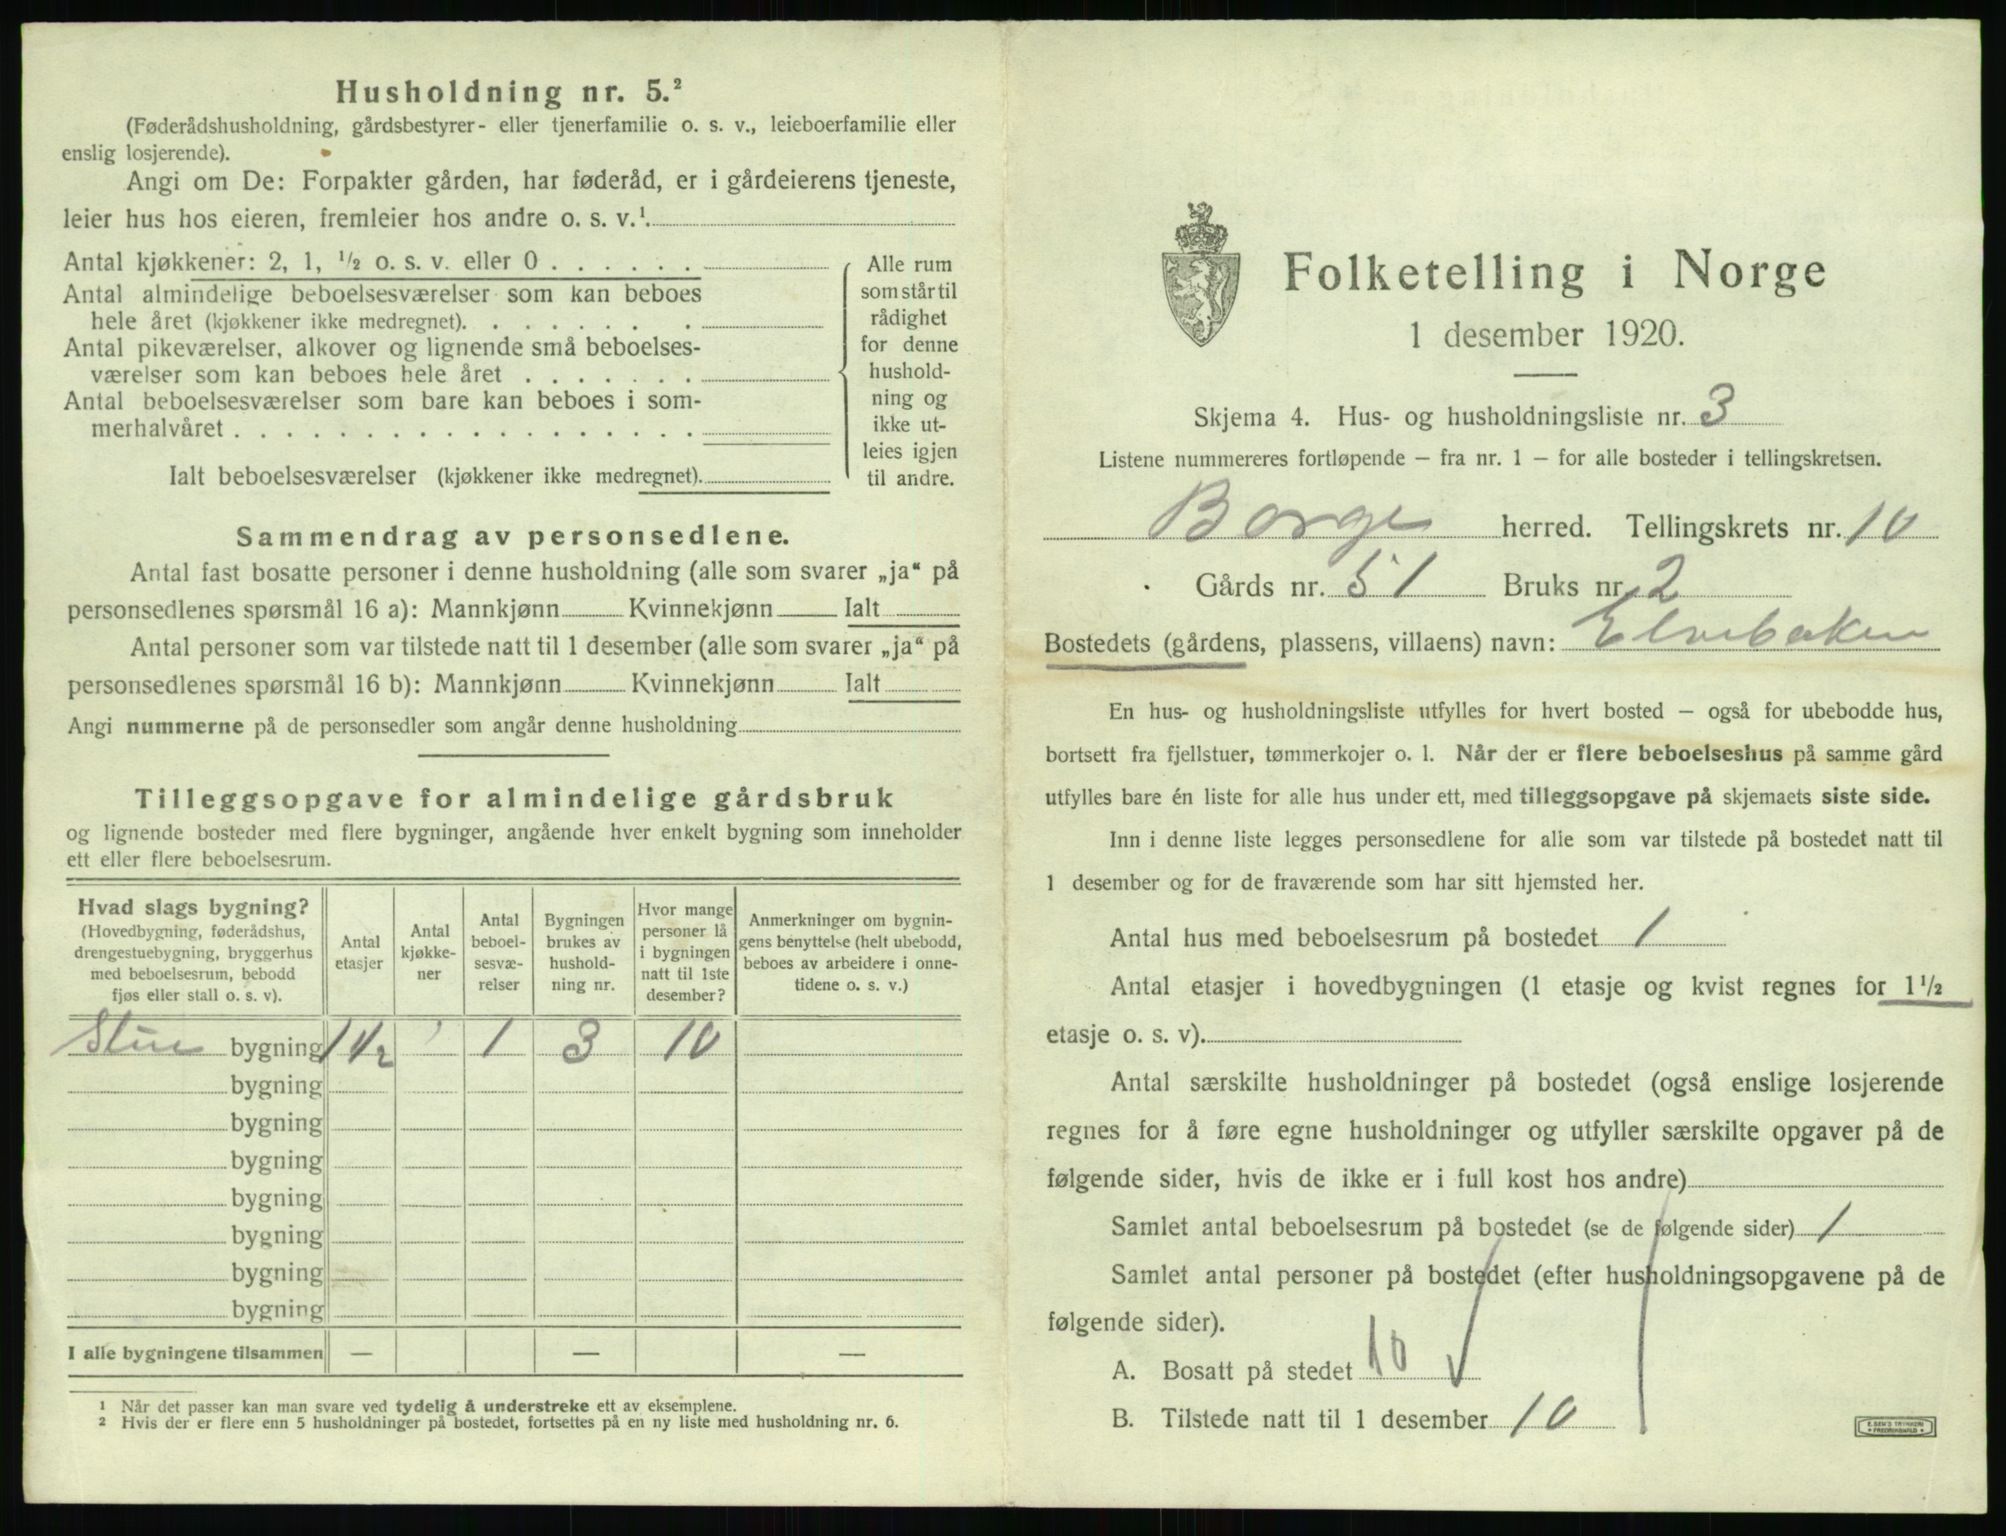 Husholdning nr. 5.²
(Føderådshusholdning, gårdsbestyrer- eller tjenerfamilie o. s. v., leieboerfamilie eller
enslig losjerende).
Angi om De: Forpakter gården, har føderåd, er i gårdeierens tjeneste,
leier hus hos eieren, fremleier hos andre o. s. v.¹
Antal kjøkkener: 2, 1, ¹/₂ o. s. v. eller 0 . . . . . .
Antal almindelige beboelsesværelser som kan beboes
hele året (kjøkkener ikke medregnet). . . . . . . .
Antal pikeværelser, alkover og lignende små beboelses-
værelser som kan beboes hele året . . . . . . .
Antal beboelsesværelser som bare kan beboes i som-
merhalvåret . . . . . . . . . . . . . . . . . .
Ialt beboelsesværelser (kjøkkener ikke medregnet).
Alle rum
som står til
rådighet
for denne
hushold-
ning og
ikke ut-
leies igjen
til andre.
Sammendrag av personsedlene.
Antal fast bosatte personer i denne husholdning (alle som svarer „ja“ på
personsedlenes spørsmål 16 a): Mannkjønn Kvinnekjønn Ialt
Antal personer som var tilstede natt til 1 desember (alle som svarer „ja“ på
personsedlenes spørsmål 16 b): Mannkjønn Kvinnekjønn Ialt
Angi nummerne på de personsedler som angår denne husholdning
Tilleggsopgave for almindelige gårdsbruk
og lignende bosteder med flere bygninger, angående hver enkelt bygning som inneholder
ett eller flere beboelsesrum.
Hvad slags bygning?
(Hovedbygning, føderådshus,
drengestuebygning, bryggerhus
med beboelsesrum, bebodd
fjøs eller stall o. s. v).
Antal
etasjer
Antal
kjøkke-
ner
Antal
beboel-
sesvæ-
relser
Bygningen
brukes av
hushold-
ning nr.
Hvor mange
personer lå
i bygningen
natt til 1ste
desember?
Anmerkninger om bygnin-
gens benyttelse (helt ubebodd,
beboes av arbeidere i onne-
tidene o. s. v.)
bygning 1 1/2 1 3 10
bygning
bygning
bygning
bygning
bygning
bygning
bygning
I alle bygningene tilsammen — — —
¹ Når det passer kan man svare ved tydelig å understreke ett av eksemplene.
² Hvis der er flere enn 5 husholdninger på bostedet, fortsettes på en ny liste med husholdning nr. 6.
Folketelling i Norge
1 desember 1920.
Skjema 4. Hus- og husholdningsliste nr. 3
Listene nummereres fortløpende — fra nr. 1 — for alle bosteder i tellingskretsen.
Borge herred. Tellingskrets nr. 10
Gårds nr. 51 Bruks nr. 2
Bostedets (gårdens, plassens, villaens) navn: Elvebakken
En hus- og husholdningsliste utfylles for hvert bosted — også for ubebodde hus,
bortsett fra fjellstuer, tømmerkojer o. l. Når der er flere beboelseshus på samme gård
utfylles bare én liste for alle hus under ett, med tilleggsopgave på skjemaets siste side.
Inn i denne liste legges personsedlene for alle som var tilstede på bostedet natt til
1 desember og for de fraværende som har sitt hjemsted her.
Antal hus med beboelsesrum på bostedet 1
Antal etasjer i hovedbygningen (1 etasje og kvist regnes for 1¹/₂
etasje o. s. v).
Antal særskilte husholdninger på bostedet (også enslige losjerende
regnes for å føre egne husholdninger og utfyller særskilte opgaver på de
følgende sider, hvis de ikke er i full kost hos andre)
Samlet antal beboelsesrum på bostedet (se de følgende sider) 1
Samlet antal personer på bostedet (efter husholdningsopgavene på de
følgende sider).
A. Bosatt på stedet 10
B. Tilstede natt til 1 desember 10